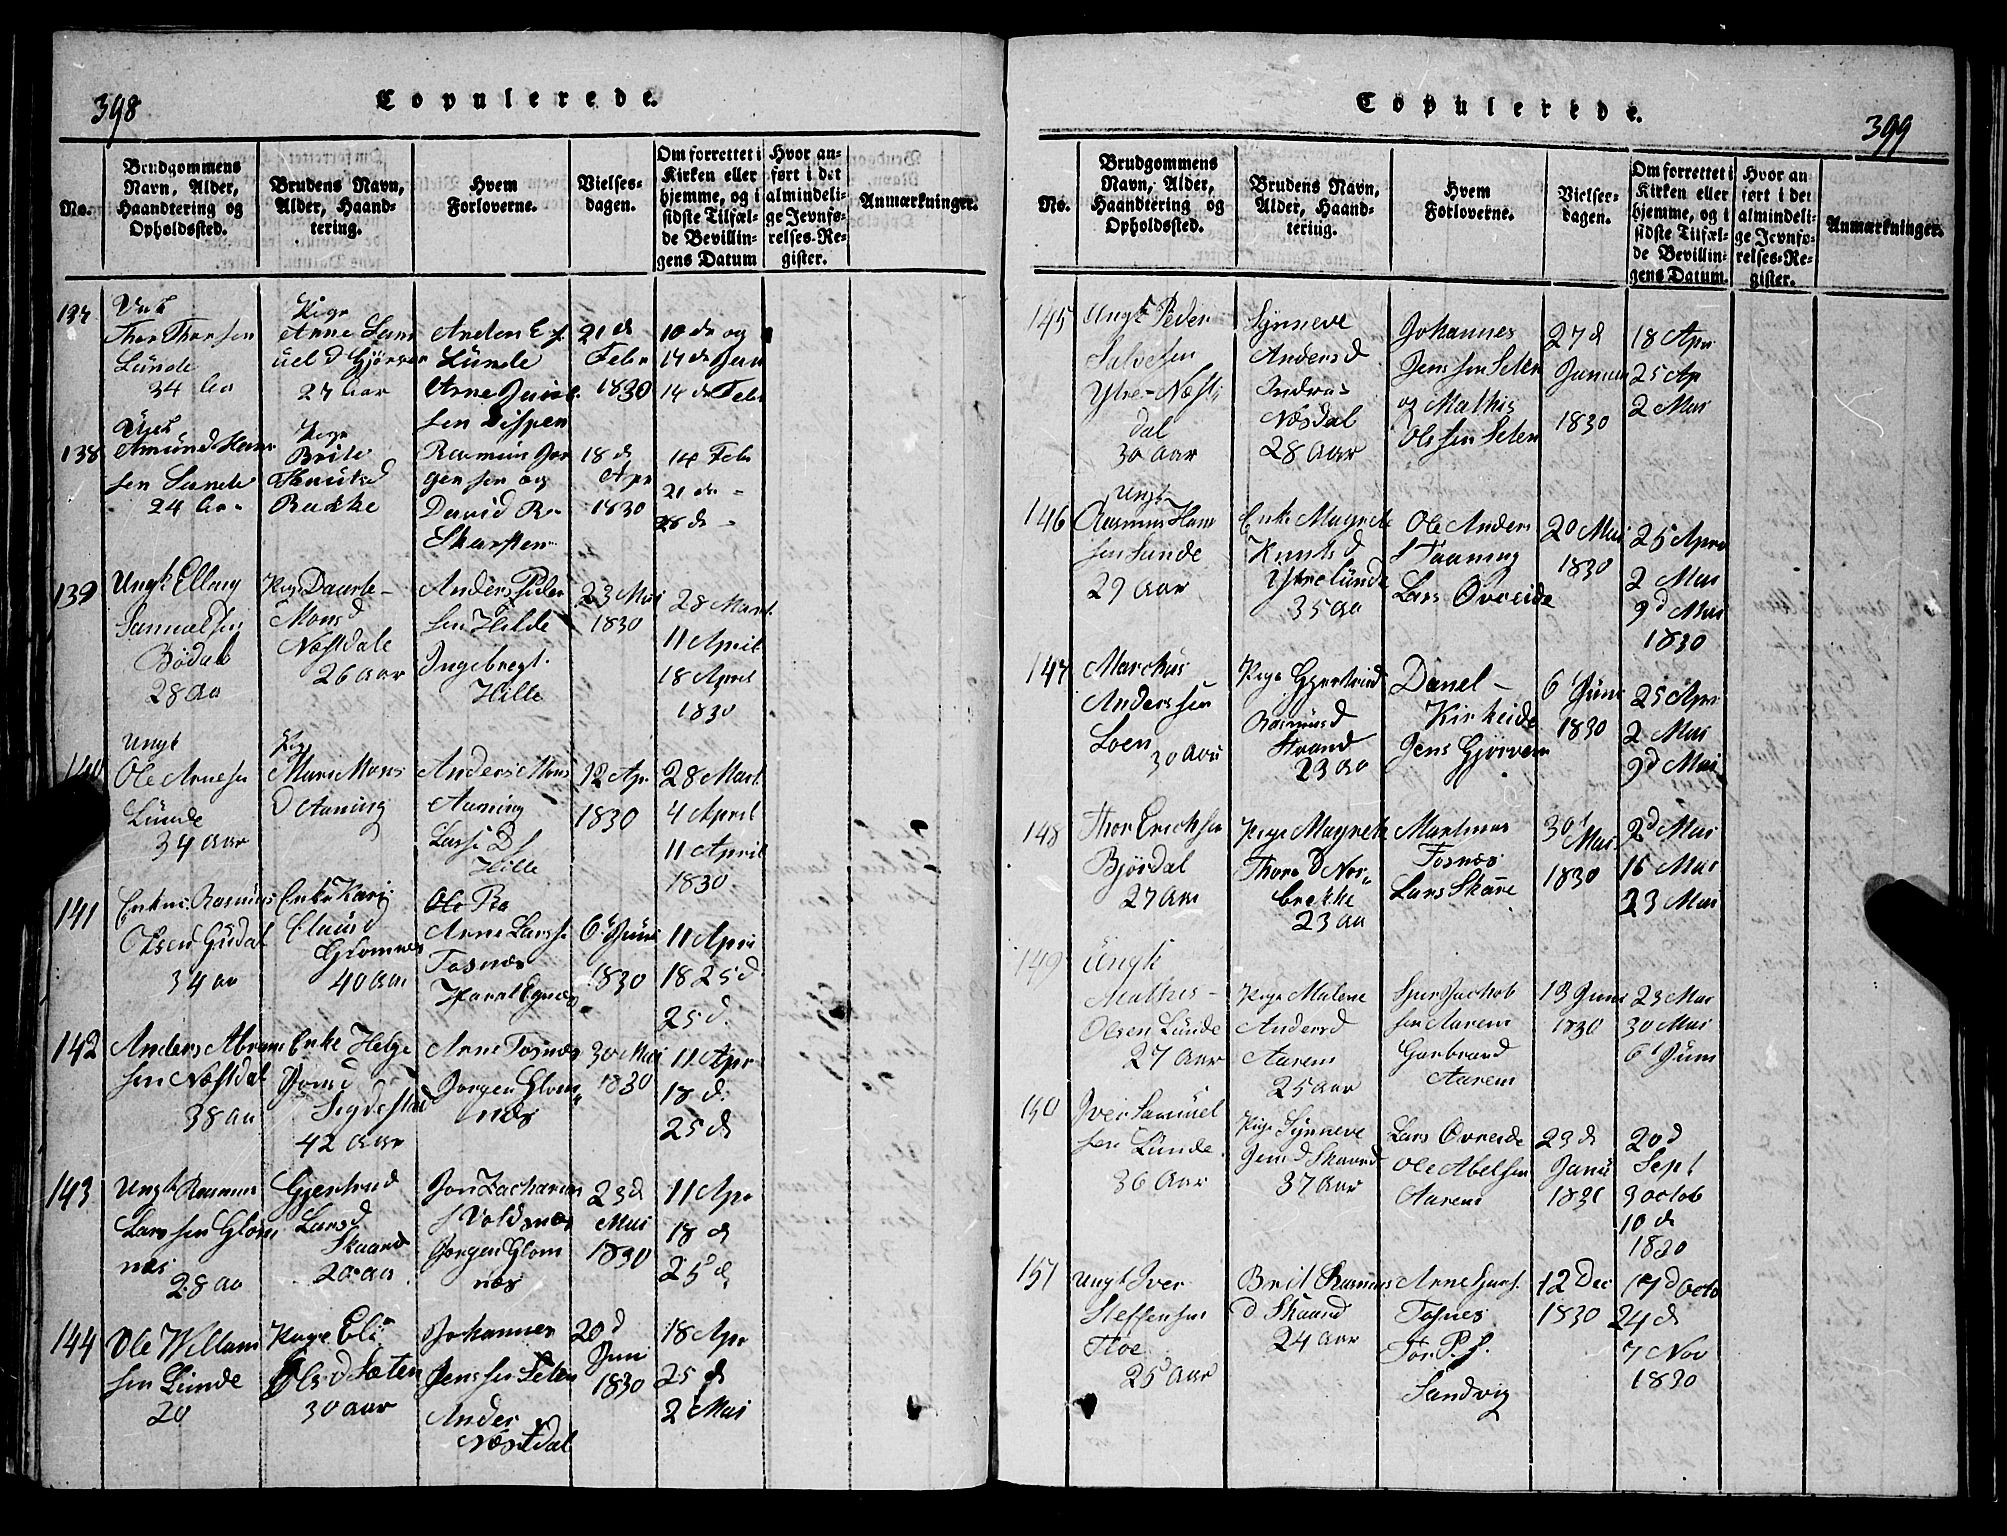 398
Copulerede.
No.
Brudgommens Navn, Alder, Haandtering og Opholdssted.
Brudens Navn, Alder, Haandtering.
Hvem Forloverne.
Vielsesdagen.
Om forrettet i Kirken eller hjemme, og i sidste Tilfælde Bevillingens Datum
Hvor anført i det almindelige Jevnførelses-Register.
Anmærkninger.
137
Thor Thorsen
Lünde
34 Aar
Pige
Anne Sam
uel d Gjørven
27 Aar
Anders
Lünde
Arne
sen Dispen
21 d
Febr
1830
10 d og
14 d Jan
14 d Feb
138
Amund Hans
sen Sunde
24 Aar
Pige
Brite
Knutsd
Rakke
Rasmus Jør
gensen og
David R
Skarsten
18 d
Apr
1830
14 Feb
21 d
28 d
139
Ungk Elling
Samuelsen
Bødal
28 Aa
Pige Daarte
Monsd
Næstdale
26 Aar
Anders Peder
sen Hilde
Ingebregt
Hille
23 Mai
1830
28 Mart
11 April
18 April
1830
140
Ungk
Ole Arnesen
Lünde
34 Aar
Pig
Mari Mons
d Aaning
Anders Mons
Aaning
Lasse
Hille
12 Apr
1830
28 Mart
4 April
11 April
1830
141
Enkm Rasmus
Olsen Gudal
34 aar
Enke Kari
Eluisd
Glomnes
40 Aar
Ole Ra
Arne Larss
Tosnæs
Haral Egnæs
6 Juni
1830
11 Apri
18 25 d
25 d.
142
Anders Abram
sen Næstdal
38 Aa
Enke Helge
Jonsd
Segdestad
42 Aar
Arne Tosnæs
Jørgen Glom
næs
30 Mai
1830
11 Apr
18 d
25 d
143
Ungk Rasmus
Larssen Glom
næs
28 Aa
Gjertrud
Larsd
Skaard
20 aa
Jon Zacharias
s Voldsnæs
Jørgen Glom
næs
23 d
Mai
1830
11 Apr
18 d
25 d
144
Ole Willum
sen Lünde
20
Pige Eli
Ols d Sæten
30 Aar
Johannes
Jenssen Seten
Ander
Næstdal
20 d
Juni
1830
18 Apr
25 d
2 Mai
399
Copulerede.
No.
Brudgommens Navn, Alder, Haandtering og Opholdssted.
Brudens Navn, Alder, Haandtering.
Hvem Forloverne.
Vielsesdagen.
Om forrettet i Kirken eller hjemme, og i sidste Tilfælde Bevillingens Datum.
Hvor anført i det almindelige Jevnførelses-Register.
Anmærkninger.
145
Ungk Peder
Salvesen
Ytre-Næst
dal
30 Aar
Synneve
Andersd
Indre
Næsdal
28 Aar
Johannes
Jenssen Seten
og Mathis
Olssen Seten
27 d
Juni
1830
18 Apr
25 Ap
2 Mai
146
Ungk
Rasmus Han
sen Sunde
29 Aar
Enke Magrete
Knuts d
Ytrelünde
35 Aa
Ole Anders
s Taaning
Lars Øvreeide
20 Mai
1830
25 Apri
2 Mai
9 d Mai
1830
147
Marchus
Anderssen
Loen
30 Aar
Pige Gjertrud
Rasmusd
Strand
23 Aa
Danel
Kirkeide
Jens Gjørven
6 Juni
1830
25 Apr
2 Mai
9 d Mai
148
Thor Erichsen
Bjørdal
27 Aar
Pige Magrete
Thore d Nor
brekke
23 Aa
Martinus
Tosnæs
Lars Skare
30 Mai
1830
2 d Mai
16 Mai
23 Mai
149
Ungk
Mathis
Olsen Lünde
27 Aar
Pige Malene
Andersd
Aarem
25 Aar
Jachob
sen Aarem
Garbrand
Aarem
13 Juni
1830
23 Mai
30 Mai
6 Juni
150
Iver Samuel
sen Lünde
36 Aar
Pige Synneve
Jens d Skaard
37 Aar
Lars Øvreide
Ole Abelsen
Aarem
23 d
Janu
1831
20 d
Sept
3 Octob
10 d
1830
151
Ungk Iver
Steffensen
Floe
25 Aar
Brit Rasmus
d Skaard
24 Aar
Arne
Tosnes
Tor P. s.
Sandvig
12 Dec
1830
17 d Octo
24 d
7 Nov
1830